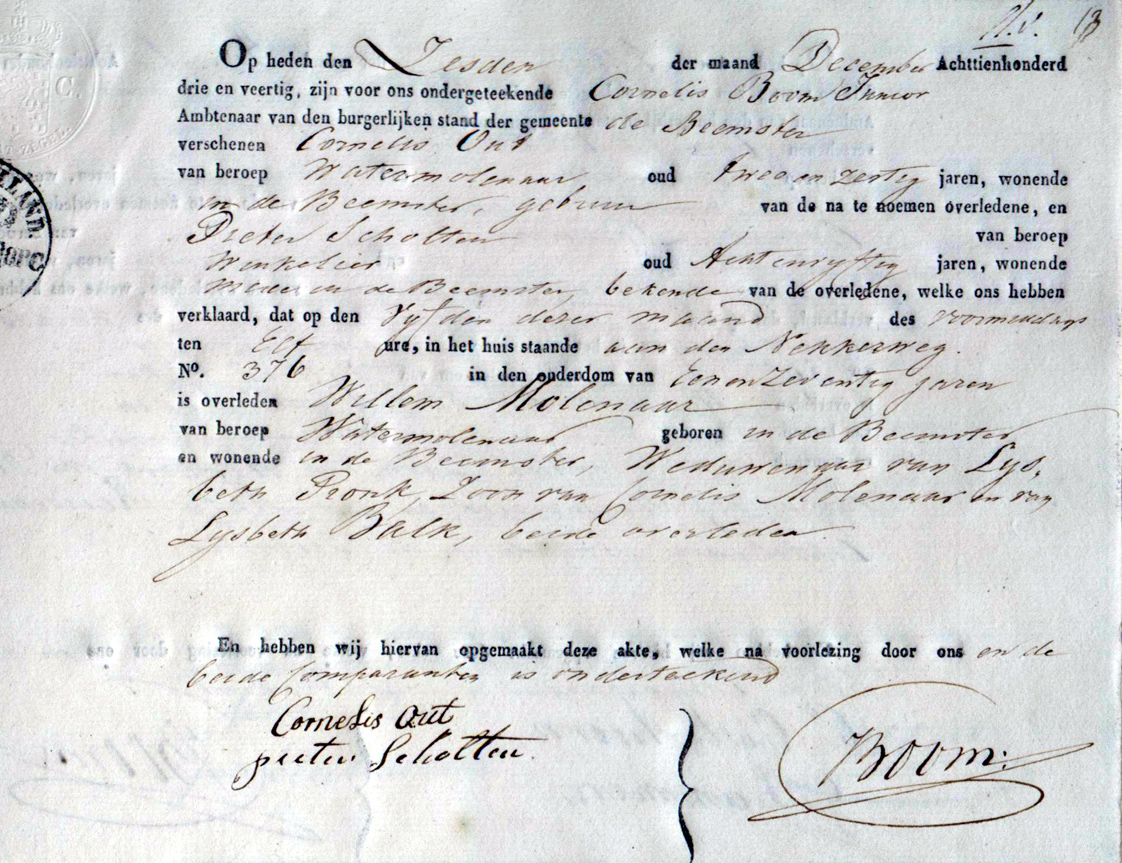 Op heden den Zesden der maand December Achttienhonderd
drie en veertig, zijn voor ons ondergeteekende Cornelis Boom Junior
Ambtenaar van den burgerlijken stand der gemeente de Beemster
verschenen Cornelis Out
van beroep Watermolenaar oud Twee en Zestig jaren, wonende
in de Beemster, gebuur van de na te noemen overledene, en
Pieter Scholten van beroep
Winkelier oud Acht en vyftig jaren, wonende
mede in de Beemster, bekende van de overledene, welke ons hebben
verklaard, dat op den Vyfden dezer maand des voormiddags
ten Elf ure, in het huis staande aan den Nekkerweg.
No. 376 in den ouderdom van Een en Zeventig jaren
is overleden Willem Molenaar
van beroep Watermolenaar geboren in de Beemster
en wonende in de Beemster Weduwenaar van Lys-
beth Pronk, Zoon van Cornelis Molenaar en van
Lysbeth Balk, beide overleden
En hebben wij hiervan opgemaakt deze akte, welke na voorlezing door ons en de
beide Comparanten is onderteekend
Cornelis Out
pieter Scholten.
Boom: